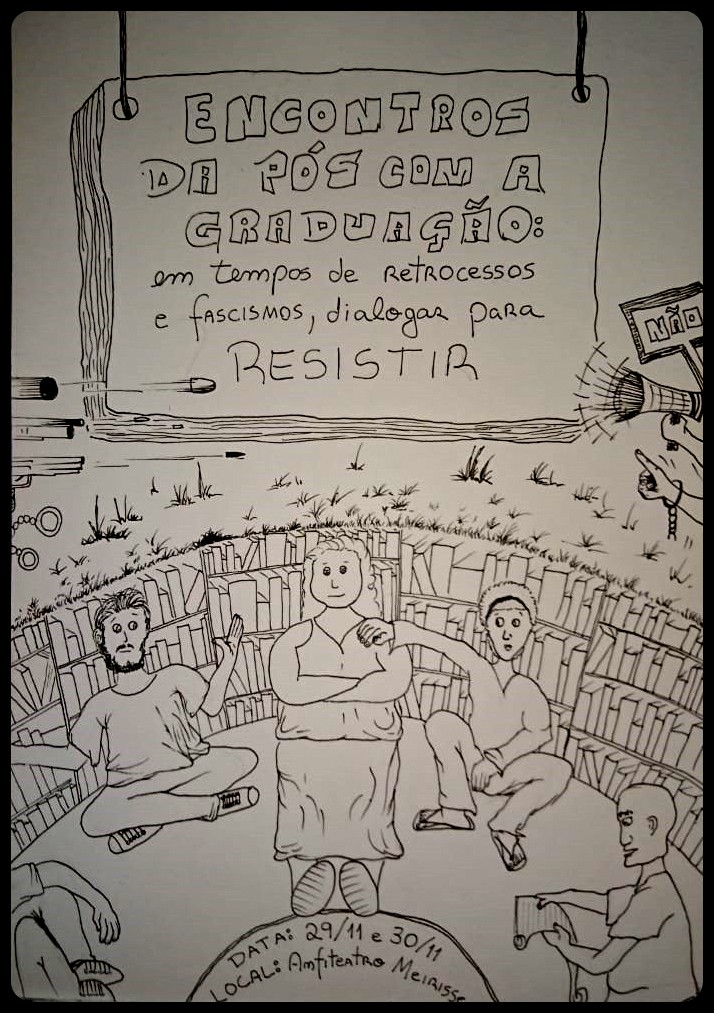 ENCONTROS
DA PÓS COM A
GRADUAÇÃO:
em tempos de RETROCESSOS
e FASCISMOS, dialogar para
RESISTIR
NÃO
DATA: 29/11 e 30/11
LOCAL: Anfiteatro Meirisse